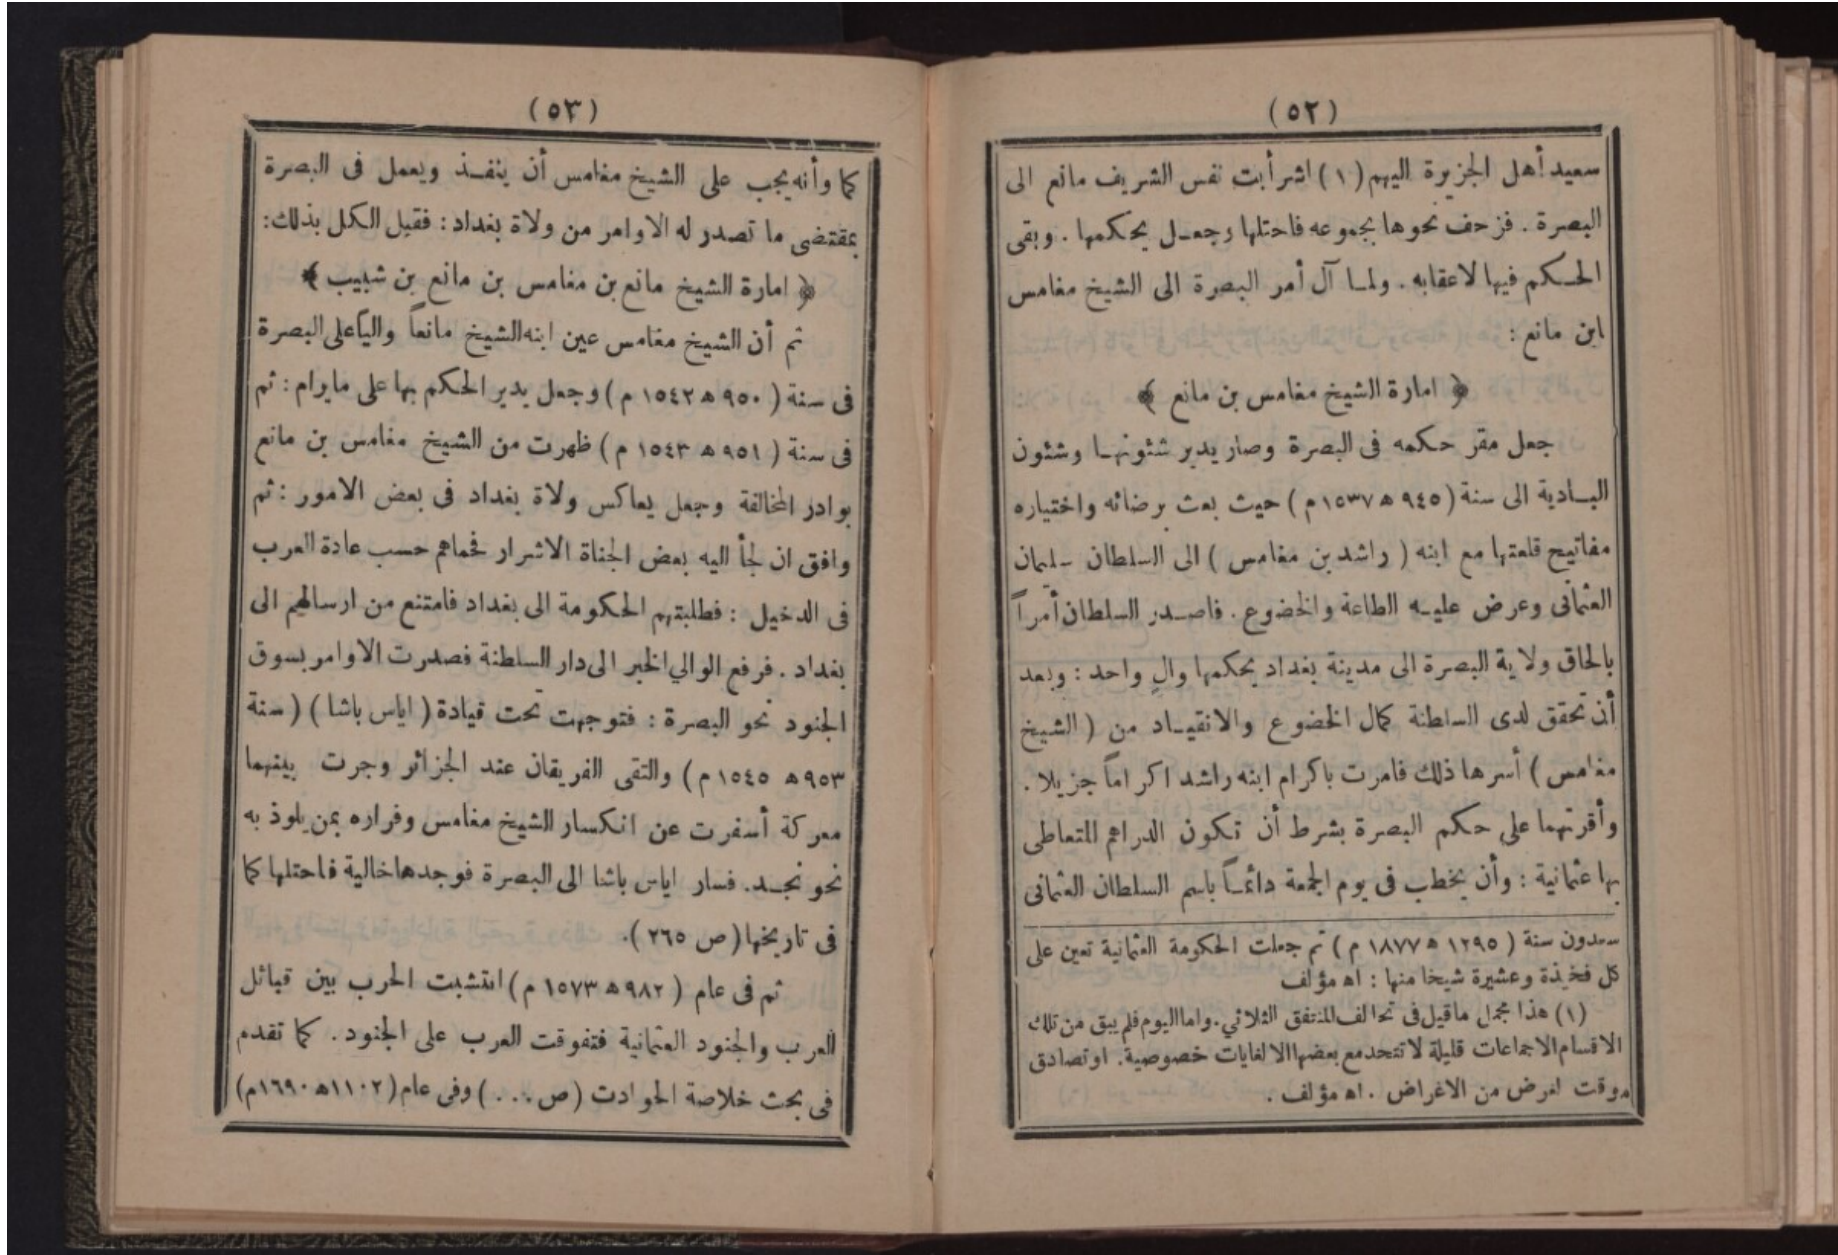 (٥٢)
سعيد أهل الجزيرة اليهم (١) اشرأبت نفس الشريف مانع الى
البصرة . فزحف نحوها بجموعه فاحتلها وجعل يحكمها . وبقى
الحكم فيها لاعقابه . ولما آل أمر البصرة الى الشيخ مغامس
ابن مانع :
﴿ امارة الشيخ مغامس بن مانع ﴾
جعل مقر حكمه فى البصرة وصار يدير شئونها وشئون
البادية الى سنة (٩٤٥ ه ١٥٣٧ م) حيث بعث برضائه واختياره
مفاتيح قلعتها مع ابنه ( راشد بن مغامس ) الى السلطان سليمان
العثمانى وعرض عليه الطاعة والخضوع . فاصدر السلطان أمراً
بالحاق ولاية البصرة الى مدينة بغداد يحكمها والٍ واحد : وبعد
أن تحقق لدى السلطنة كمال الخضوع والانقياد من ( الشيخ
مغامس ) أسرها ذلك فامرت باكرام ابنه راشد اكراماً جزيلا .
وأقرتهما على حكم البصرة بشرط أن تكون الدراهم المتعاطى
بها عثمانية : وأن يخطب فى يوم الجمعة دائماً باسم السلطان العثمانى
سعدون سنة ( ١٢٩٥ ه ١٨٧٧ م ) ثم جعلت الحكومة العثمانية تعين على
كل فخيذة وعشيرة شيخا منها : اه مؤلف
(١) هذا مجمل ماقيل فى تحالف المنتفق الثلاثي . واما اليوم فلم يبق من تلك
الاقسام الا جماعات قليلة لا تتحد مع بعضها الا لغايات خصوصية . او تصادق
موقت لغرض من الاغراض . اه مؤلف .
(٥٣)
كما وأنه يجب على الشيخ مغامس أن ينفذ ويعمل فى البصرة
بمقتضى ما تصدر له الاوامر من ولاة بغداد : فقبل الكل بذلك :
﴿ امارة الشيخ مانع بن مغامس بن مانع بن شبيب ﴾
ثم أن الشيخ مغامس عين ابنه الشيخ مانعاً والياً على البصرة
فى سنة ( ٩٥٠ ه ١٥٤٢ م ) وجعل يدير الحكم بها على مايرام : ثم
فى سنة ( ٩٥١ ه ١٥٤٣ م ) ظهرت من الشيخ مغامس بن مانع
بوادر المخالفة وجعل يعاكس ولاة بغداد فى بعض الامور : ثم
وافق ان لجأ اليه بعض الجناة الاشرار فحماهم حسب عادة العرب
فى الدخيل : فطلبتهم الحكومة الى بغداد فامتنع من ارسالهم الى
بغداد . فرفع الوالي الخبر الى دار السلطنة فصدرت الاوامر بسوق
الجنود نحو البصرة : فتوجهت تحت قيادة ( اياس باشا ) ( سنة
٩٥٣ ه ١٥٤٥ م ) والتقى الفريقان عند الجزائر وجرت بينهما
معركة أسفرت عن انكسار الشيخ مغامس وفراره بمن يلوذ به
نحو نجد . فسار اياس باشا الى البصرة فوجدها خالية فاحتلها كما
فى تاريخها ( ص ٢٦٥ ).
ثم فى عام ( ٩٨٢ ه ١٥٧٣ م ) انتشبت الحرب بين قبائل
العرب والجنود العثمانية فتفوقت العرب على الجنود . كما تقدم
فى بحث خلاصة الحوادث ( ص . . . ) وفى عام ( ١١٠٢ ه ١٦٩٠ م)